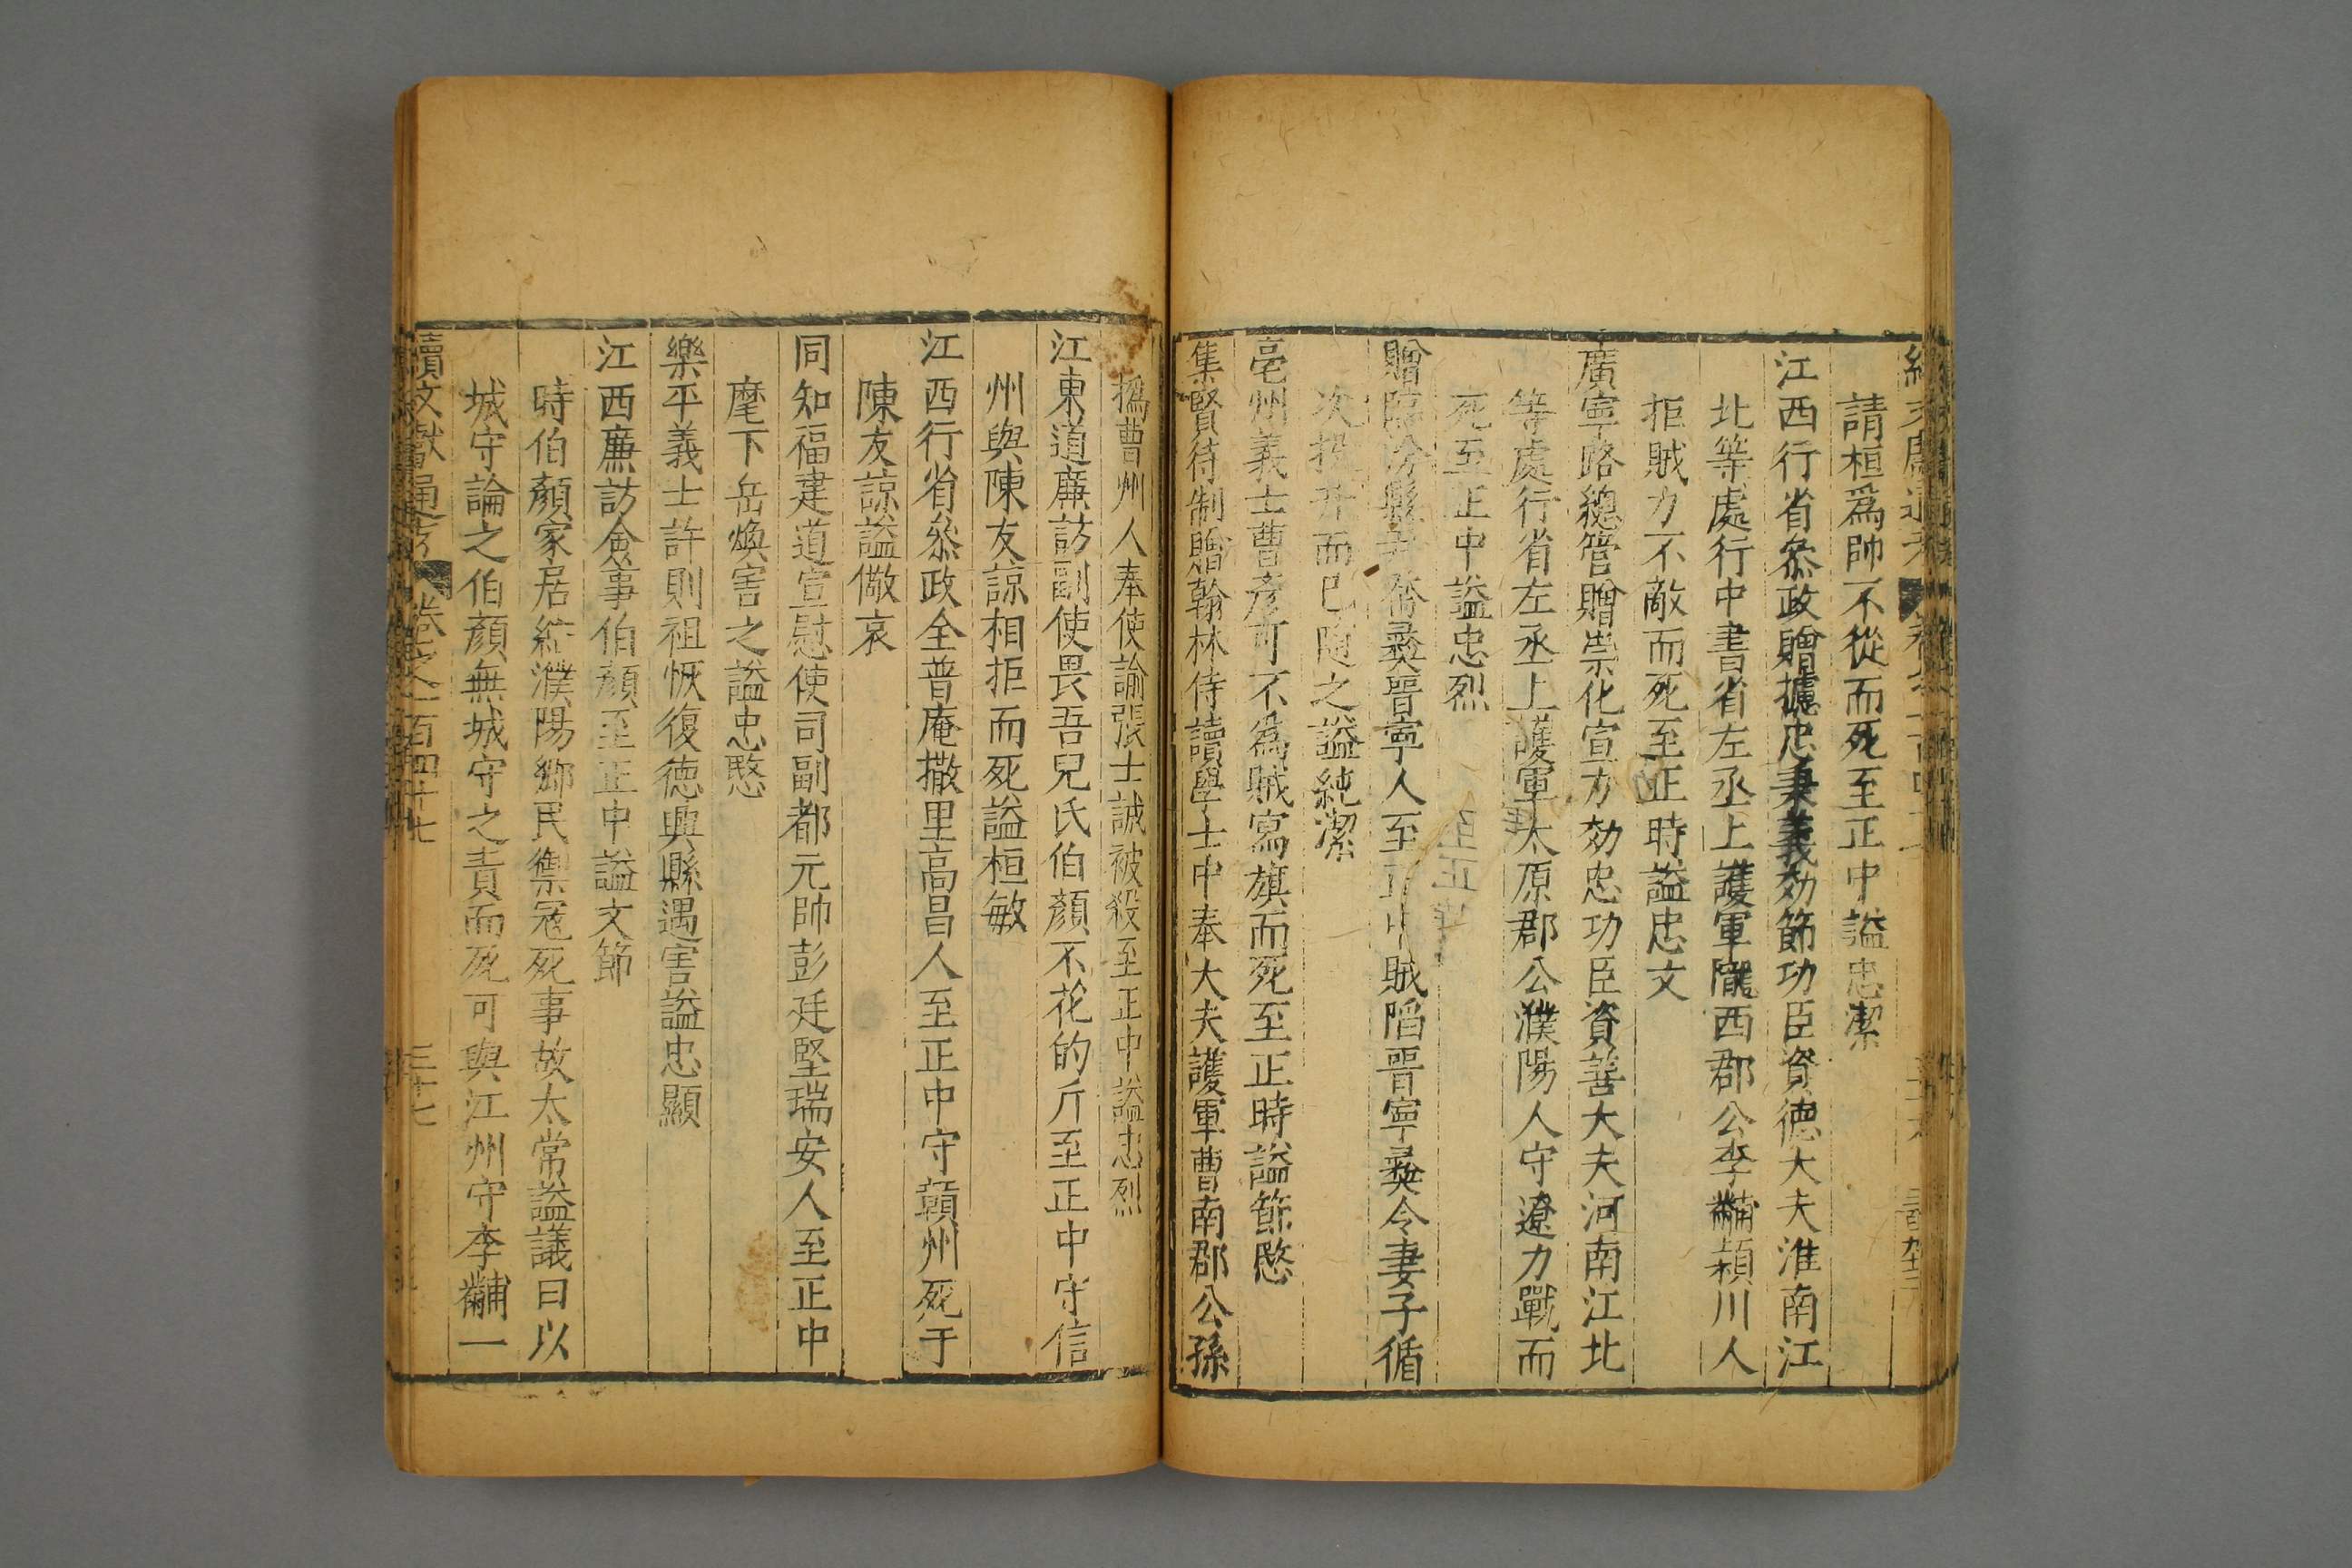 請桓爲帥不從而死至正中謚忠潔
江西行省叅政贈攄忠秉義効節功臣資德大夫淮南江
北等處行中書省左丞上護軍隴西郡公李黼潁川人
拒賊力不敵而死至正時謚忠文
廣寧路總管贈崇化宣力効忠功臣資善大夫河南江北
等處行省左丞上護軍太原郡公濮陽人守遼力戰而
死至正中謚忠烈
贈臨汾縣喬彞晉寧人至正中賊陷晉寧彞令妻子循
次投井而己隨之謚純潔
亳州義士曹彥可不爲賊寫旗而死至正時謚節愍
集賢待制贈翰林侍讀學士中奉大夫護軍曹南郡公孫
撝曹州人奉使諭張士誠被殺至正中謚忠烈
江東道廉訪副使畏吾兒氏伯顏不花的斤至正中守信
州與陳友諒相拒而死謚桓敏
江西行省叅政全普庵撒里高昌人至正中守贑州死于
陳友諒謚儆哀
同知福建道宣慰使司副都元帥彭廷堅瑞安人至正中
麾下岳煥害之謚忠愍
樂平義士許則祖恢復德興縣遇害謚忠顯
江西廉訪僉事伯顏至正中謚文節
時伯顏家居結濮陽鄉民禦冦死事故太常謚議曰以
城守論之伯顏無城守之責而死可與江州守李黼一
續文獻通考 卷之一百四十七 三十七